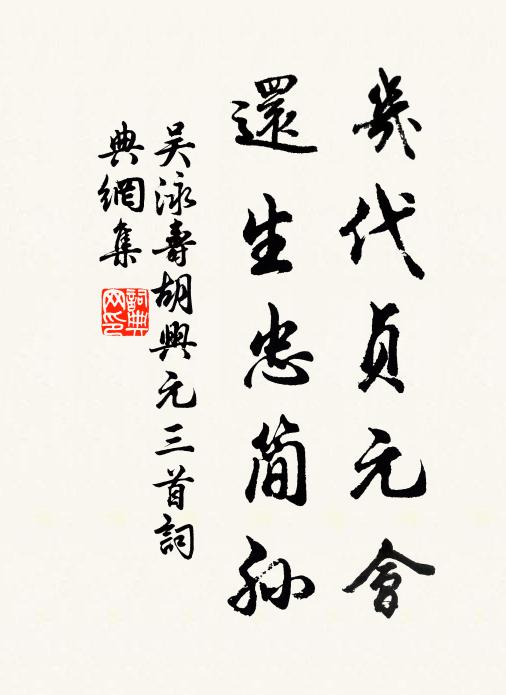 幾代貞元會
還生忠簡孙
吴泳壽胡興元三首詞
典網集
詞典
网印